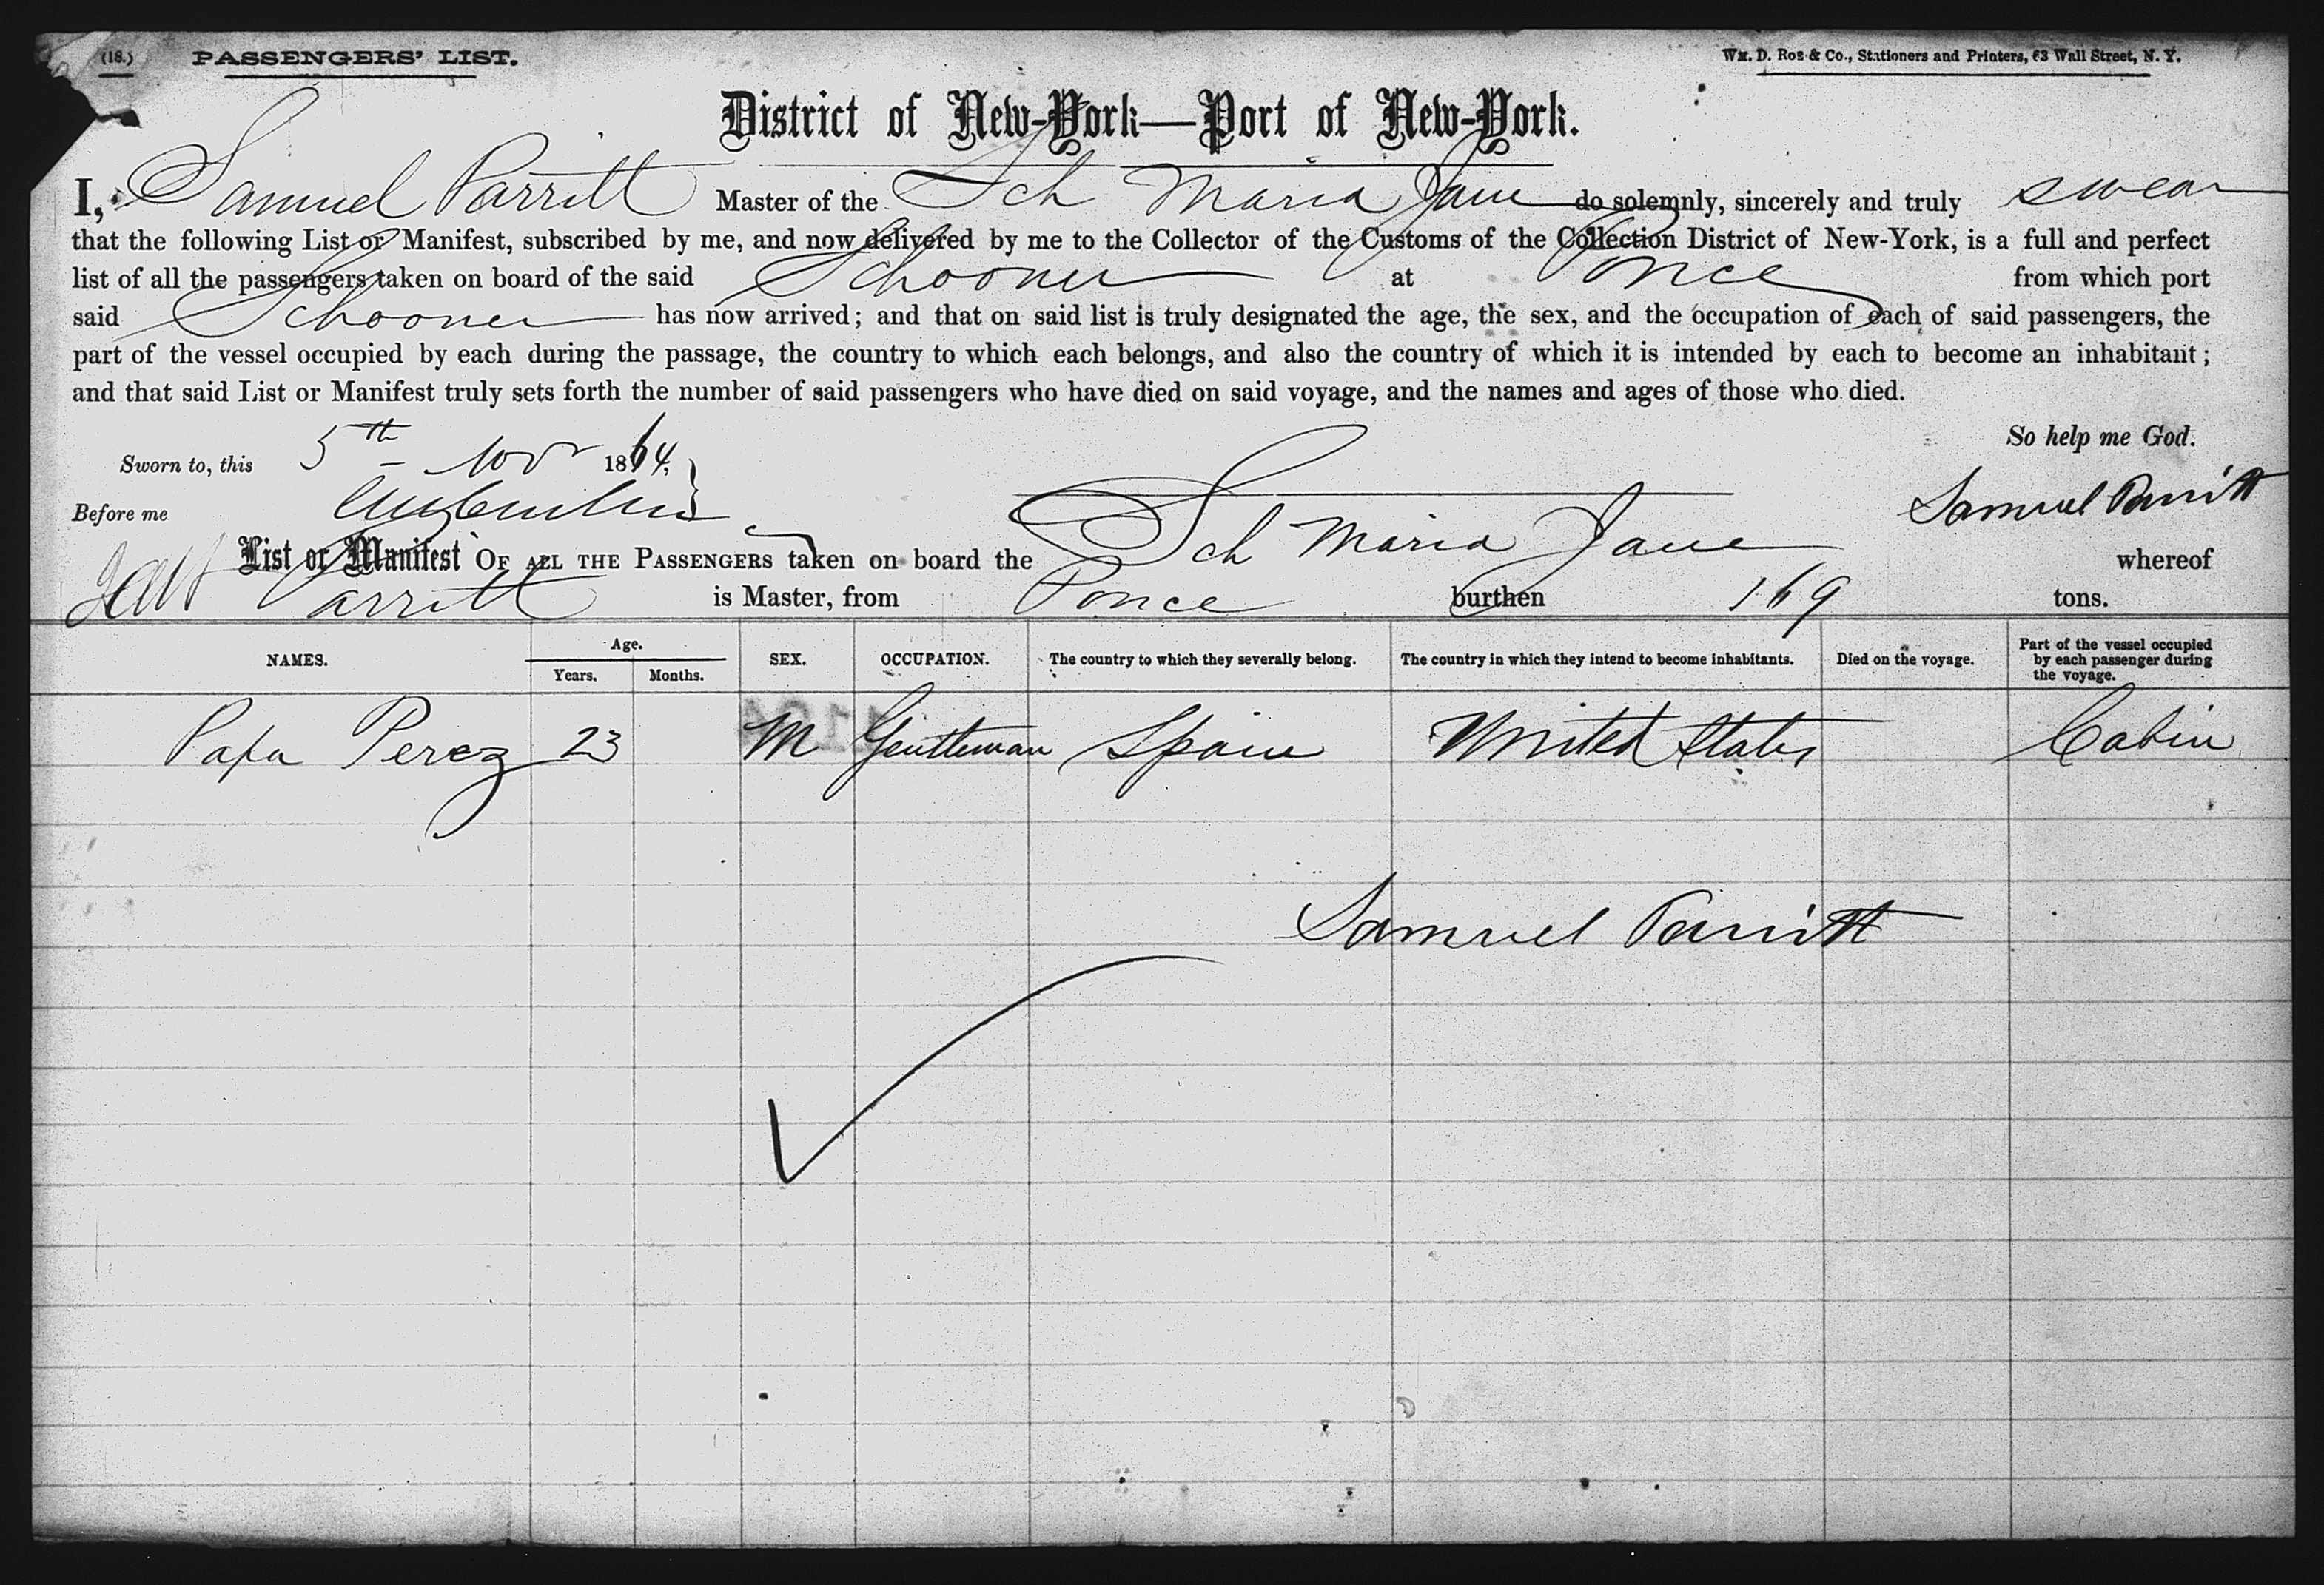 (18.) PASSENGERS' LIST. Wm. D. Roe & Co., Stationers and Printers, 63 Wall Street, N. Y.
District of New-York—Port of New-York.
I, Samuel Parritt Master of the Sch Maria Jane do solemnly, sincerely and truly swear
that the following List or Manifest, subscribed by me, and now delivered by me to the Collector of the Customs of the Collection District of New-York, is a full and perfect
list of all the passengers taken on board of the said Schooner at Ponce from which port
said Schooner has now arrived; and that on said list is truly designated the age, the sex, and the occupation of each of said passengers, the
part of the vessel occupied by each during the passage, the country to which each belongs, and also the country of which it is intended by each to become an inhabitant;
and that said List or Manifest truly sets forth the number of said passengers who have died on said voyage, and the names and ages of those who died.
So help me God.
Sworn to, this 5th Nov 1864,
Before me
Samuel Parritt
List or Manifest OF ALL THE PASSENGERS taken on board the Sch Maria Jane whereof
Parritt is Master, from Ponce burthen 169 tons.
NAMES. Age. Years. Months. SEX. OCCUPATION. The country to which they severally belong. The country in which they intend to become inhabitants. Died on the voyage. Part of the vessel occupied by each passenger during the voyage.
Papa Perez 23 M Gentleman Spain United States Cabin
Samuel Parritt